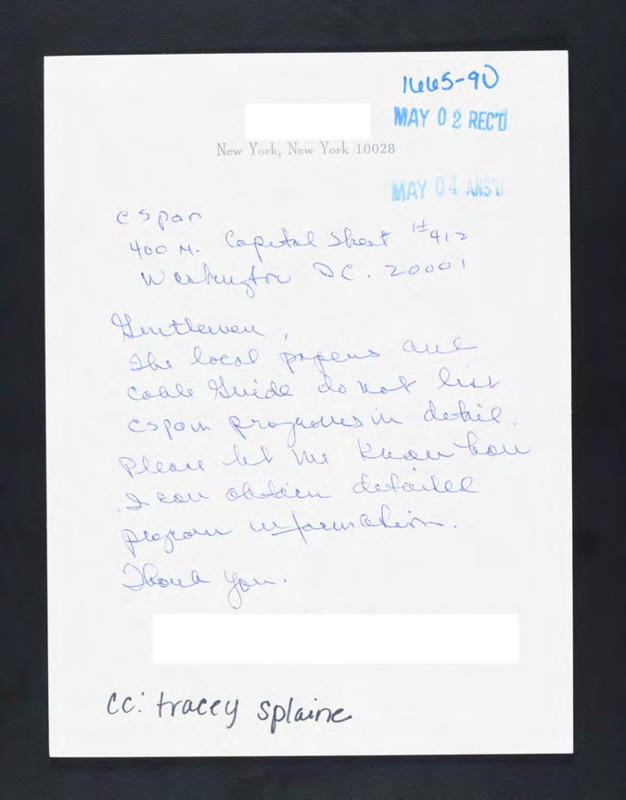 1665-90
MAY 02 REC'D
New York, New York 10028
MAY 04 ANS'D
cspan
400 N. Capital Street #412
Washington DC. 20001
Gentlemen,
The local papers and
Cable Guide do not list
cspan programs in detail.
Please let me know how
I can obtain detailed
program information.
Thank you.
cc: tracey splaine